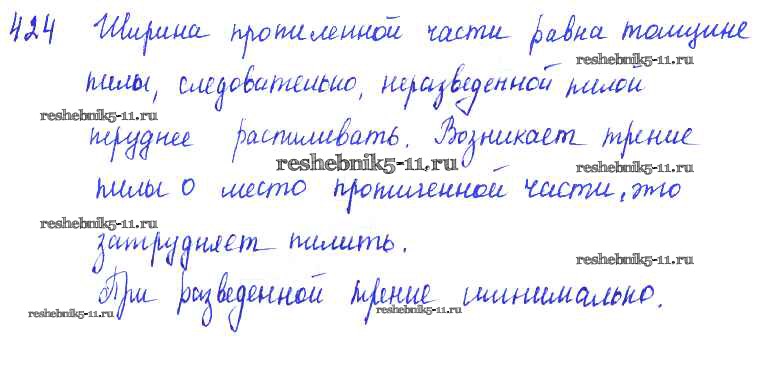 424 Ширина пропиленной части равна толщине
reshebnik5-11.ru
пилы, следовательно, неразведенной пилой
reshebnik5-11.ru
труднее распиливать. Возникает трение
reshebnik5-11.ru reshebnik5-11.ru
пилы о место пропиленной части, это
reshebnik5-11.ru
затрудняет пилить.
reshebnik5-11.ru
При разведенной трение минимально.
reshebnik5-11.ru reshebnik5-11.ru